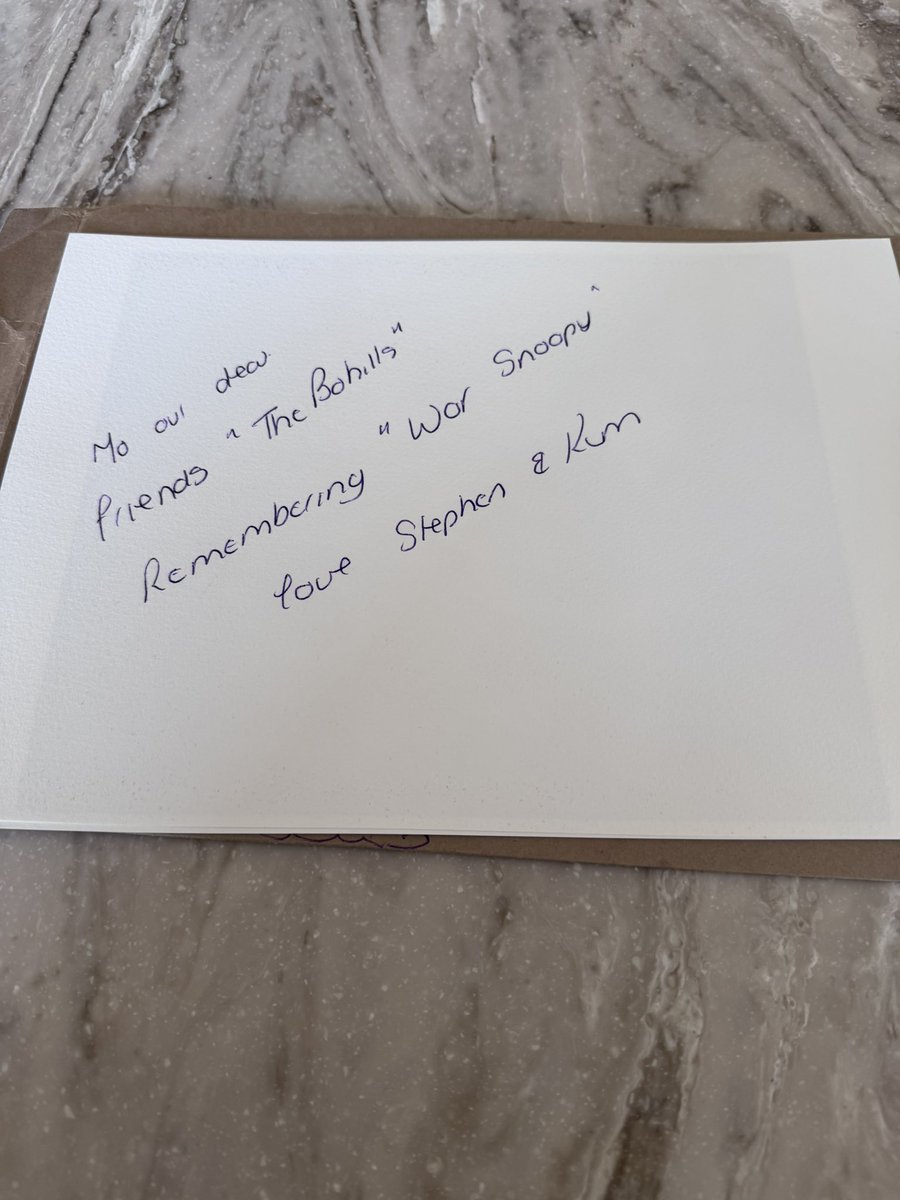 To our dear
friends "The Bohills"
Remembering "Wor Snoopy"
love Stephen & Kim